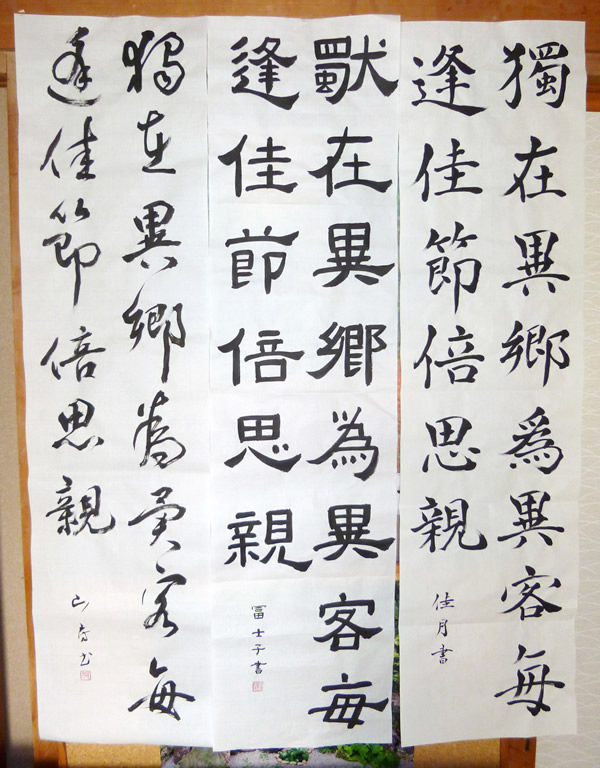 獨在異鄉爲異客毎
逢佳節倍思親
佳月書
獸在異鄉為異客毎
逢佳節倍思親
冨士子書
獨在異鄉為異客毎
逢佳節倍思親